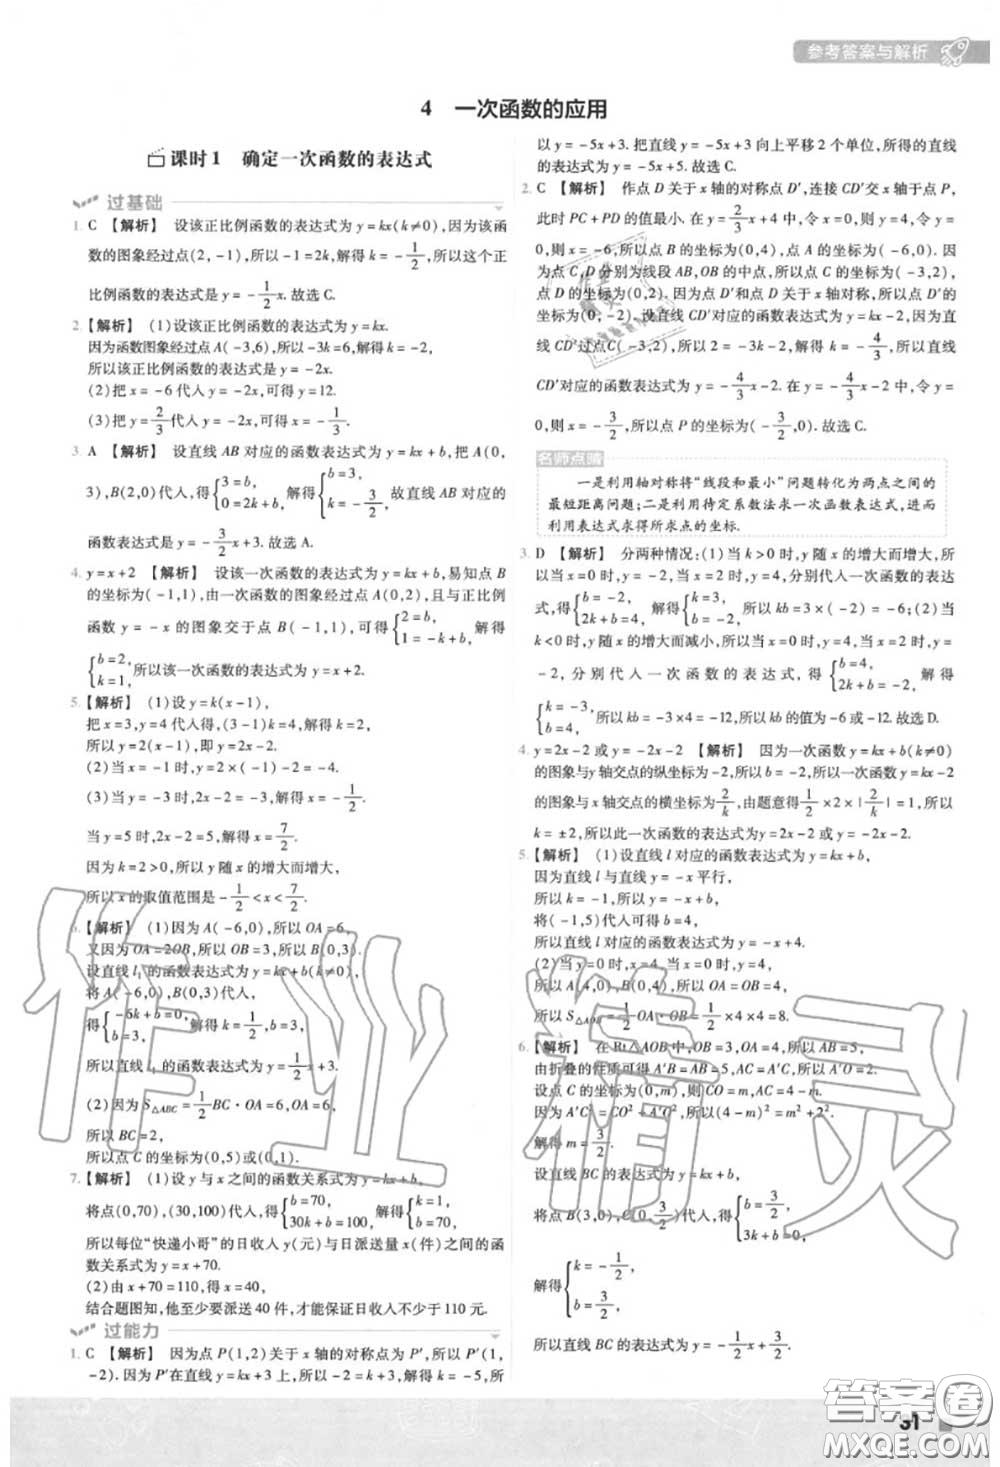 参考答案与解析
4 一次函数的应用
课时1 确定一次函数的表达式
过基础
1. C 【解析】 设该正比例函数的表达式为 y=kx(k≠0),因为该函数
的图象经过点(2,-1),所以-1=2k,解得 k=-1/2,所以这个正
比例函数的表达式是 y=-1/2x.故选 C.
2. 【解析】 (1)设该正比例函数的表达式为 y=kx.
因为函数图象经过点 A(-3,6),所以-3k=6,解得 k=-2,
所以该正比例函数的表达式是 y=-2x.
(2)把 x=-6代入 y=-2x,可得 y=12.
(3)把 y=2/3代入 y=-2x,可得 x=-1/3.
3. A 【解析】 设直线 AB 对应的函数表达式为 y=kx+b,将A(0,
3),B(2,0)代入,得{3=b,0=2k+b,解得{b=3,k=-3/2,故直线 AB 对应的
函数表达式为 y=-3/2x+3.故选 A.
4. y=x+2 【解析】 设该一次函数的表达式为 y=kx+b,易知点 B
的坐标为(-1,1),由一次函数的图象经过点A(0,2),且与正比例
函数 y=-x 的图象交于点 B(-1,1),可得{2=b,1=-k+b,解得
{b=2,k=1,所以该一次函数的表达式为 y=x+2.
5. 【解析】 (1)设 y=k(x-1),
把 x=3,y=4代入得,(3-1)k=4,解得 k=2,
所以 y=2(x-1),即 y=2x-2.
(2)当 x=-2时,y=2×(-2)-2=-6.
(3)当 y=-3时,2x-2=-3,解得 x=-1/2.
当 y=5时,2x-2=5,解得 x=7/2.
因为 k=2>0,所以 y 随 x 的增大而增大,
所以 x 的取值范围是-1/2<x<7/2.
6. 【解析】 (1)因为 A(-6,0),所以 OA=6,
又因为 OA=2OB,所以 OB=3,所以 B(0,3).
设直线 l₁的函数表达式为 y=kx+b(k≠0),
将 A(-6,0),B(0,3)代入,
得{-6k+b=0,b=3,解得 k=1/2,b=3,
所以直线 l₁的表达式为 y=1/2x+3.
(2)因为 S△ABC=1/2BC·OA=6,OA=6,
所以 BC=2,
所以点 C 的坐标为(0,5)或(0,1).
7. 【解析】 (1)设 y 与 x 之间的函数关系式为 y=kx+b,
将点(0,70),(30,100)代入,得{b=70,30k+b=100,解得{k=1,b=70,
所以每位“快递小哥”的日收入 y(元)与日派送量 x(件)之间的函
数关系式为 y=x+70.
(2)由 x+70=110,得 x=40,
结合题图知,他至少要派送 40 件,才能保证日收入不少于 110 元.
过能力
1. C 【解析】 因为点 P(1,2)关于 x 轴的对称点为 P′,所以 P′(1,
-2).因为 P′在直线 y=kx+3上,所以-2=k+3,解得 k=-5,所
以 y=-5x+3.把直线 y=-5x+3向上平移 2 个单位,所得的直线
的表达式为 y=-5x+5.故选 C.
2. C 【解析】 作点 D 关于 x 轴的对称点 D′,连接 CD′交 x 轴于点 P,
此时 PC+PD 的值最小.在 y=2/3x+4中,令 x=0,则 y=4,令 y=
0,则 x=-6,所以点 B 的坐标为(0,4),点 A 的坐标为(-6,0).因
为点 C,D 分别为线段 AB,OB 的中点,所以点 C 的坐标为(-3,2),
点 D 的坐标为(0,2).因为点 D′和点 D 关于 x 轴对称,所以点 D′的坐标
为(0,-2).设直线 CD′对应的函数表达式为 y=kx-2,因为直线
CD′过点 C(-3,2),所以 2=-3k-2,解得 k=-4/3,所以直线
CD′对应的函数表达式为 y=-4/3x-2.在 y=-4/3x-2中,令 y=
0,则 x=-3/2,所以点 P 的坐标为(-3/2,0).故选 C.
名师点睛
一是利用轴对称将“线段和最小”问题转化为两点之间的
最短距离问题;二是利用待定系数法求一次函数表达式,进而
利用表达式求得所求点的坐标.
3. D 【解析】 分两种情况:(1)当 k>0时,y 随 x 的增大而增大,所
以当 x=0时,y=-2,当 x=2时,y=4,分别代入一次函数的表达
式,得{b=-2,2k+b=4,解得{k=3,b=-2,所以 kb=3×(-2)=-6;(2)当
k<0时,y随 x 的增大而减小,所以当 x=0时,y=4,当 x=2时,y=
-2,分别代入一次函数的表达式,得{b=4,2k+b=-2,解得
{k=-3,b=4,所以 kb=-3×4=-12,所以 kb 的值为-6或-12.故选 D.
4. y=2x-2或 y=-2x-2 【解析】 因为一次函数 y=kx+b(k≠0)
的图象与y轴交点的纵坐标为-2,所以 b=-2,所以一次函数 y=kx-2
的图象与 x 轴交点的横坐标为2/k,由题意得1/2×2×|2/k|=1,所以
k=±2,所以此一次函数的表达式为 y=2x-2或 y=-2x-2.
5. 【解析】 (1)设直线 l 对应的函数表达式为 y=kx+b,
因为直线 l 与直线 y=-x 平行,
所以 k=-1,所以 y=-x+b,
将(-1,5)代入可得 b=4,
所以直线 l 对应的函数表达式为 y=-x+4.
(2)当 y=0时,x=4,当 x=0时,y=4,
所以 A(4,0),B(0,4),
所以 S△AOB=1/2OA·OB=1/2×4×4=8.
6. 【解析】 在 Rt△AOB 中,OB=3,OA=4,所以 AB=5,
由折叠的性质可得 A′B=AB=5,AC=A′C,所以 A′O=2.
设点 C 的坐标为(0,m),则 OC=m,AC=4-m.
因为 A′C²=CO²+A′O²,所以(4-m)²=m²+2².
解得 m=3/2.
设直线 BC 的表达式为 y=kx+b,
将点 B(3,0),C(0,3/2)代入得{b=3/2,3k+b=0,
解得{k=-1/2,b=3/2,
所以直线 BC 的表达式为 y=-1/2x+3/2.
作业精灵
答案圈
MXQE.COM
51